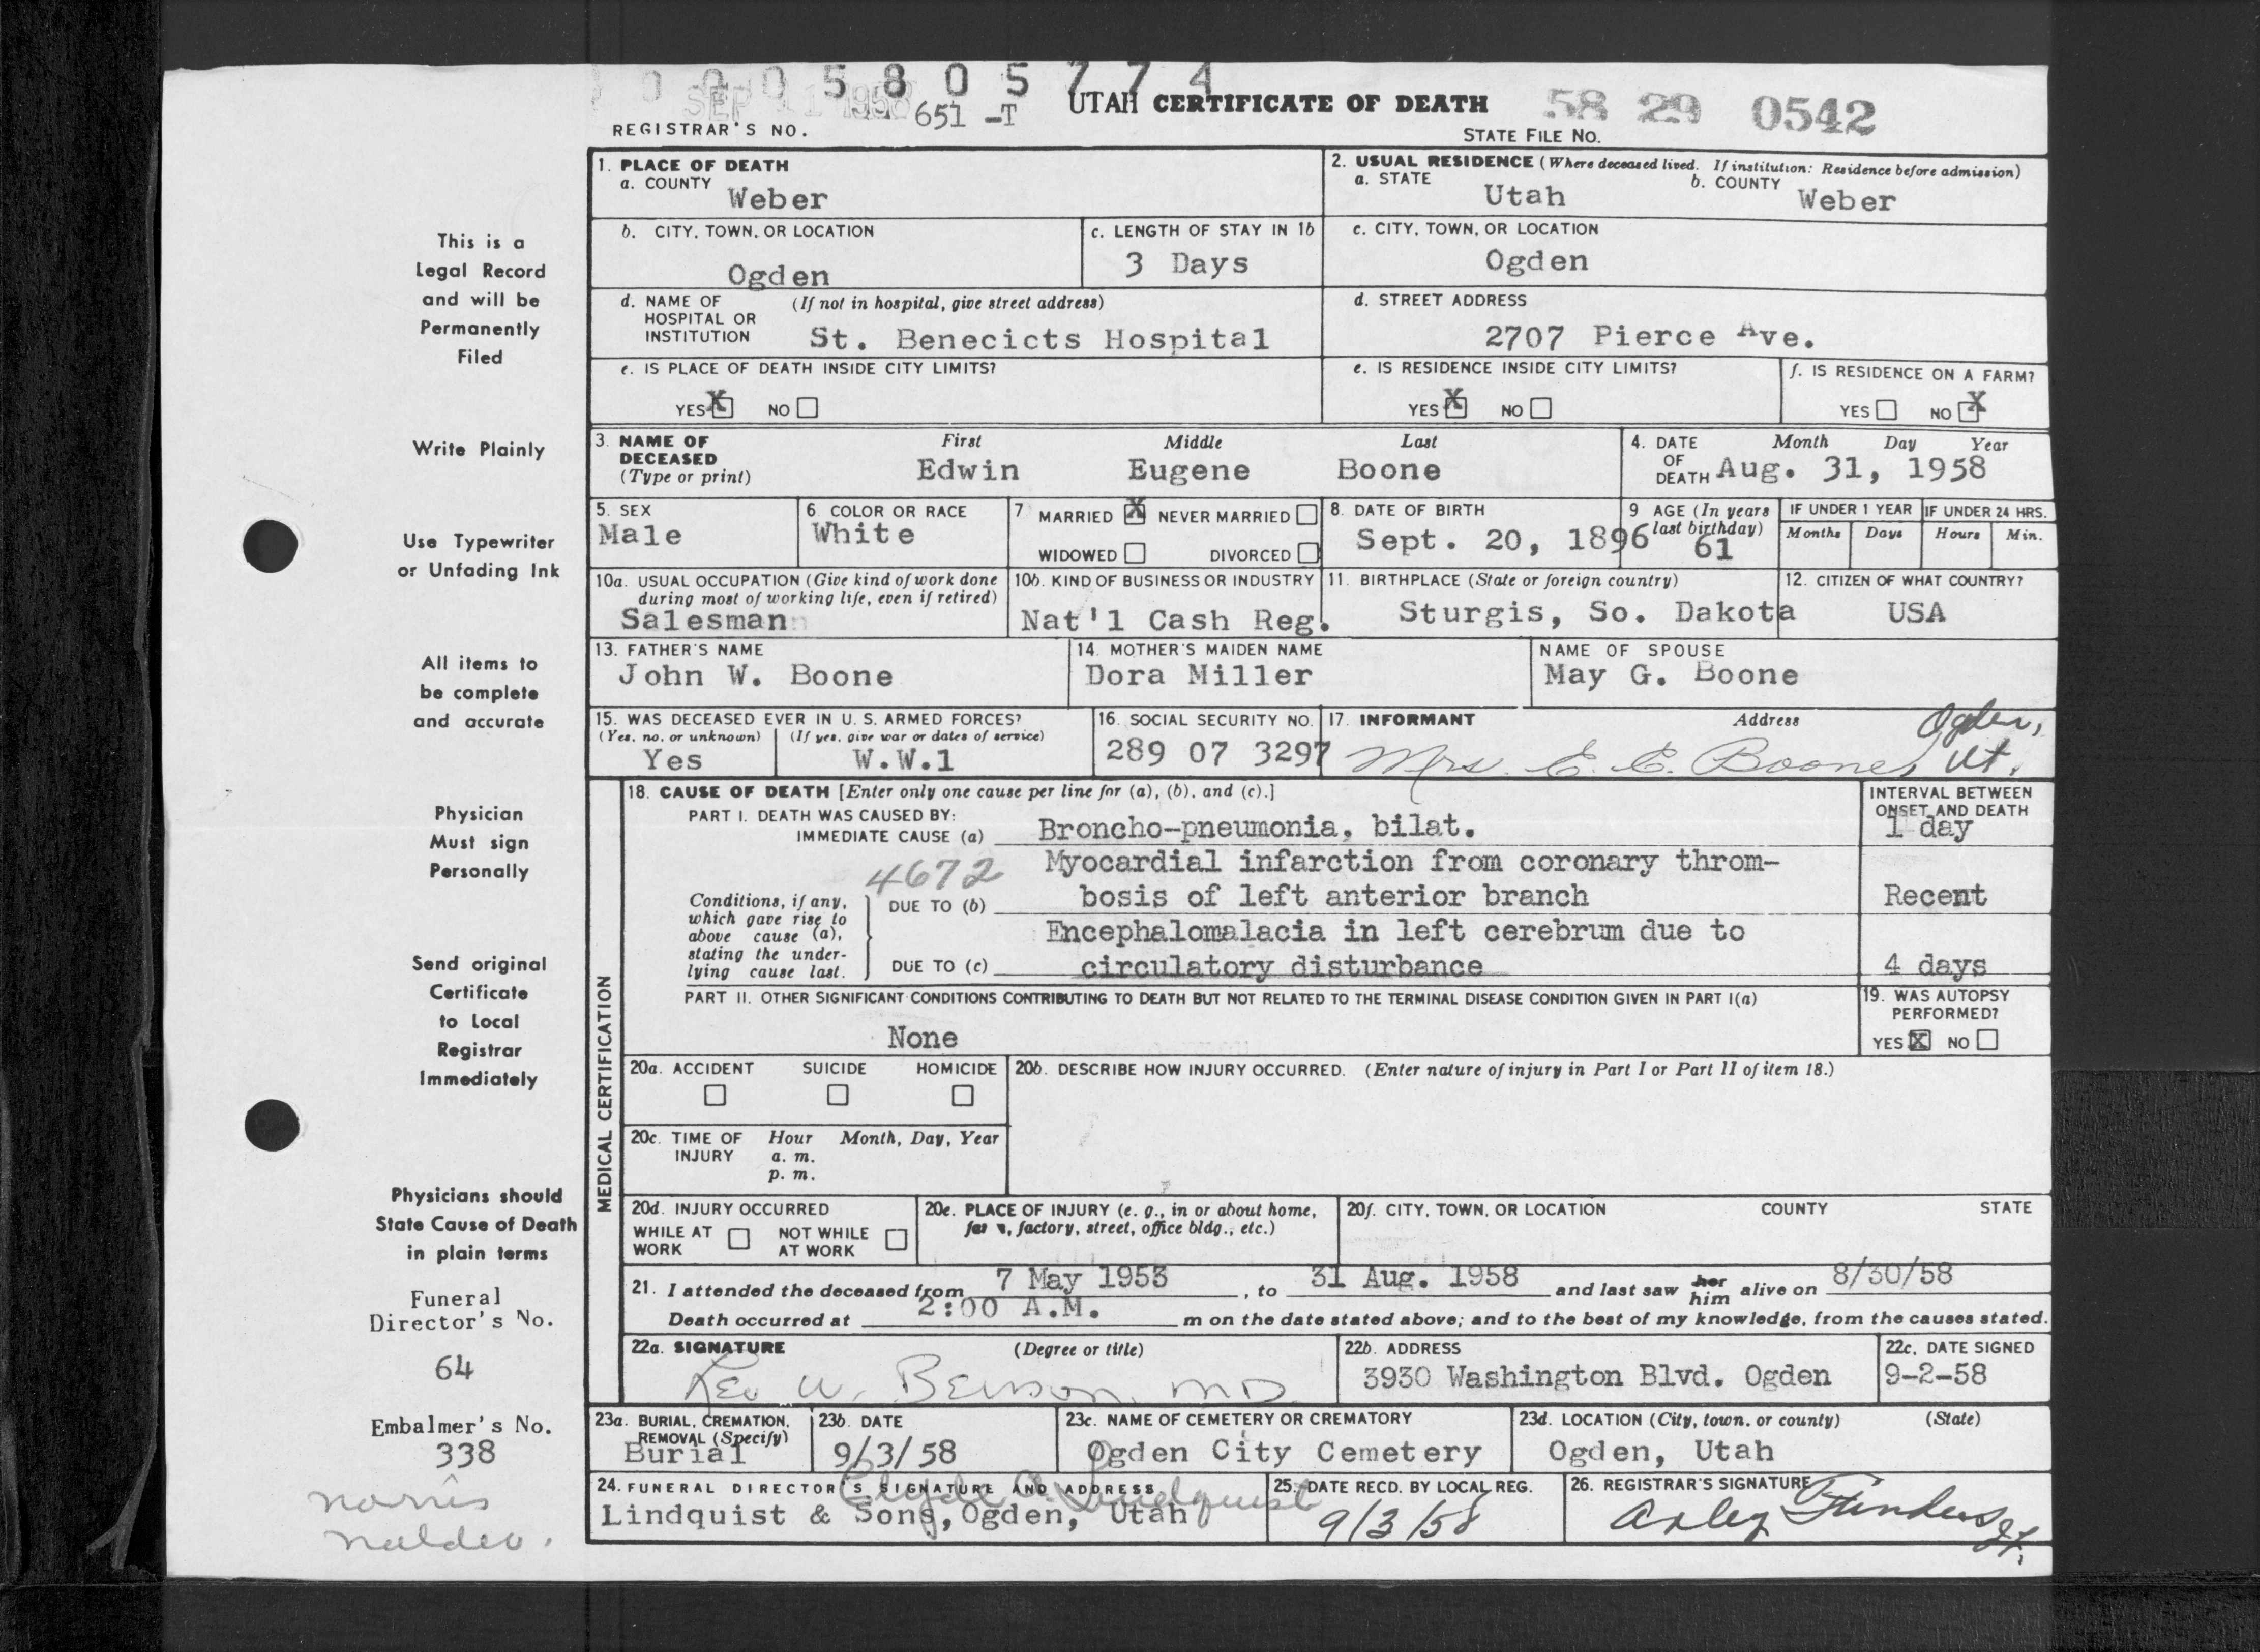 0 0 0 5 8 0 5 7 7 4
SEP 11 1958 651 -T UTAH CERTIFICATE OF DEATH 58 29 0542
REGISTRAR'S NO. STATE FILE NO.
1. PLACE OF DEATH
a. COUNTY Weber
2. USUAL RESIDENCE (Where deceased lived. If institution: Residence before admission)
a. STATE Utah b. COUNTY Weber
b. CITY, TOWN, OR LOCATION Ogden
c. LENGTH OF STAY IN 1b 3 Days
c. CITY, TOWN, OR LOCATION Ogden
d. NAME OF HOSPITAL OR INSTITUTION (If not in hospital, give street address)
St. Benecicts Hospital
d. STREET ADDRESS
2707 Pierce Ave.
e. IS PLACE OF DEATH INSIDE CITY LIMITS?
YES X NO
e. IS RESIDENCE INSIDE CITY LIMITS?
YES X NO
f. IS RESIDENCE ON A FARM?
YES NO X
3. NAME OF DECEASED (Type or print)
First Middle Last
Edwin Eugene Boone
4. DATE OF DEATH Month Day Year
Aug. 31, 1958
5. SEX
Male
6. COLOR OR RACE
White
7 MARRIED X NEVER MARRIED
WIDOWED DIVORCED
8. DATE OF BIRTH
Sept. 20, 1896
9 AGE (In years last birthday)
61
IF UNDER 1 YEAR
Months Days
IF UNDER 24 HRS.
Hours Min.
10a. USUAL OCCUPATION (Give kind of work done during most of working life, even if retired)
Salesman
10b. KIND OF BUSINESS OR INDUSTRY
Nat'l Cash Reg.
11. BIRTHPLACE (State or foreign country)
Sturgis, So. Dakota
12. CITIZEN OF WHAT COUNTRY?
USA
13. FATHER'S NAME
John W. Boone
14. MOTHER'S MAIDEN NAME
Dora Miller
NAME OF SPOUSE
May G. Boone
15. WAS DECEASED EVER IN U. S. ARMED FORCES?
(Yes, no, or unknown) (If yes, give war or dates of service)
Yes W.W.1
16. SOCIAL SECURITY NO.
289 07 3297
17. INFORMANT Address
Mrs. E. E. Boone, Ogden, Ut.
MEDICAL CERTIFICATION
18. CAUSE OF DEATH [Enter only one cause per line for (a), (b), and (c).]
INTERVAL BETWEEN ONSET AND DEATH
PART I. DEATH WAS CAUSED BY:
IMMEDIATE CAUSE (a) Broncho-pneumonia, bilat. 1 day
4672
Conditions, if any, which gave rise to above cause (a), stating the underlying cause last.
Myocardial infarction from coronary throm-
DUE TO (b) bosis of left anterior branch Recent
Encephalomalacia in left cerebrum due to
DUE TO (c) circulatory disturbance 4 days
PART II. OTHER SIGNIFICANT CONDITIONS CONTRIBUTING TO DEATH BUT NOT RELATED TO THE TERMINAL DISEASE CONDITION GIVEN IN PART I(a)
None
19. WAS AUTOPSY PERFORMED?
YES X NO
20a. ACCIDENT SUICIDE HOMICIDE
20b. DESCRIBE HOW INJURY OCCURRED. (Enter nature of injury in Part I or Part II of item 18.)
20c. TIME OF INJURY Hour Month, Day, Year
a. m.
p. m.
20d. INJURY OCCURRED
WHILE AT WORK NOT WHILE AT WORK
20e. PLACE OF INJURY (e. g., in or about home, farm, factory, street, office bldg., etc.)
20f. CITY, TOWN, OR LOCATION COUNTY STATE
21. I attended the deceased from 7 May 1953, to 31 Aug. 1958 and last saw her him alive on 8/30/58
Death occurred at 2:00 A.M. m on the date stated above; and to the best of my knowledge, from the causes stated.
22a. SIGNATURE (Degree or title)
W. Benson, MD
22b. ADDRESS
3930 Washington Blvd. Ogden
22c. DATE SIGNED
9-2-58
23a. BURIAL, CREMATION, REMOVAL (Specify)
Burial
23b. DATE
9/3/58
23c. NAME OF CEMETERY OR CREMATORY
Ogden City Cemetery
23d. LOCATION (City, town, or county) (State)
Ogden, Utah
24. FUNERAL DIRECTOR'S SIGNATURE AND ADDRESS
Clyde A. Lindquist
Lindquist & Sons, Ogden, Utah
25. DATE RECD. BY LOCAL REG.
9/3/58
26. REGISTRAR'S SIGNATURE
Arley Flinders
This is a
Legal Record
and will be
Permanently
Filed
Write Plainly
Use Typewriter
or Unfading Ink
All items to
be complete
and accurate
Physician
Must sign
Personally
Send original
Certificate
to Local
Registrar
Immediately
Physicians should
State Cause of Death
in plain terms
Funeral
Director's No.
64
Embalmer's No.
338
Norris
Nalder.